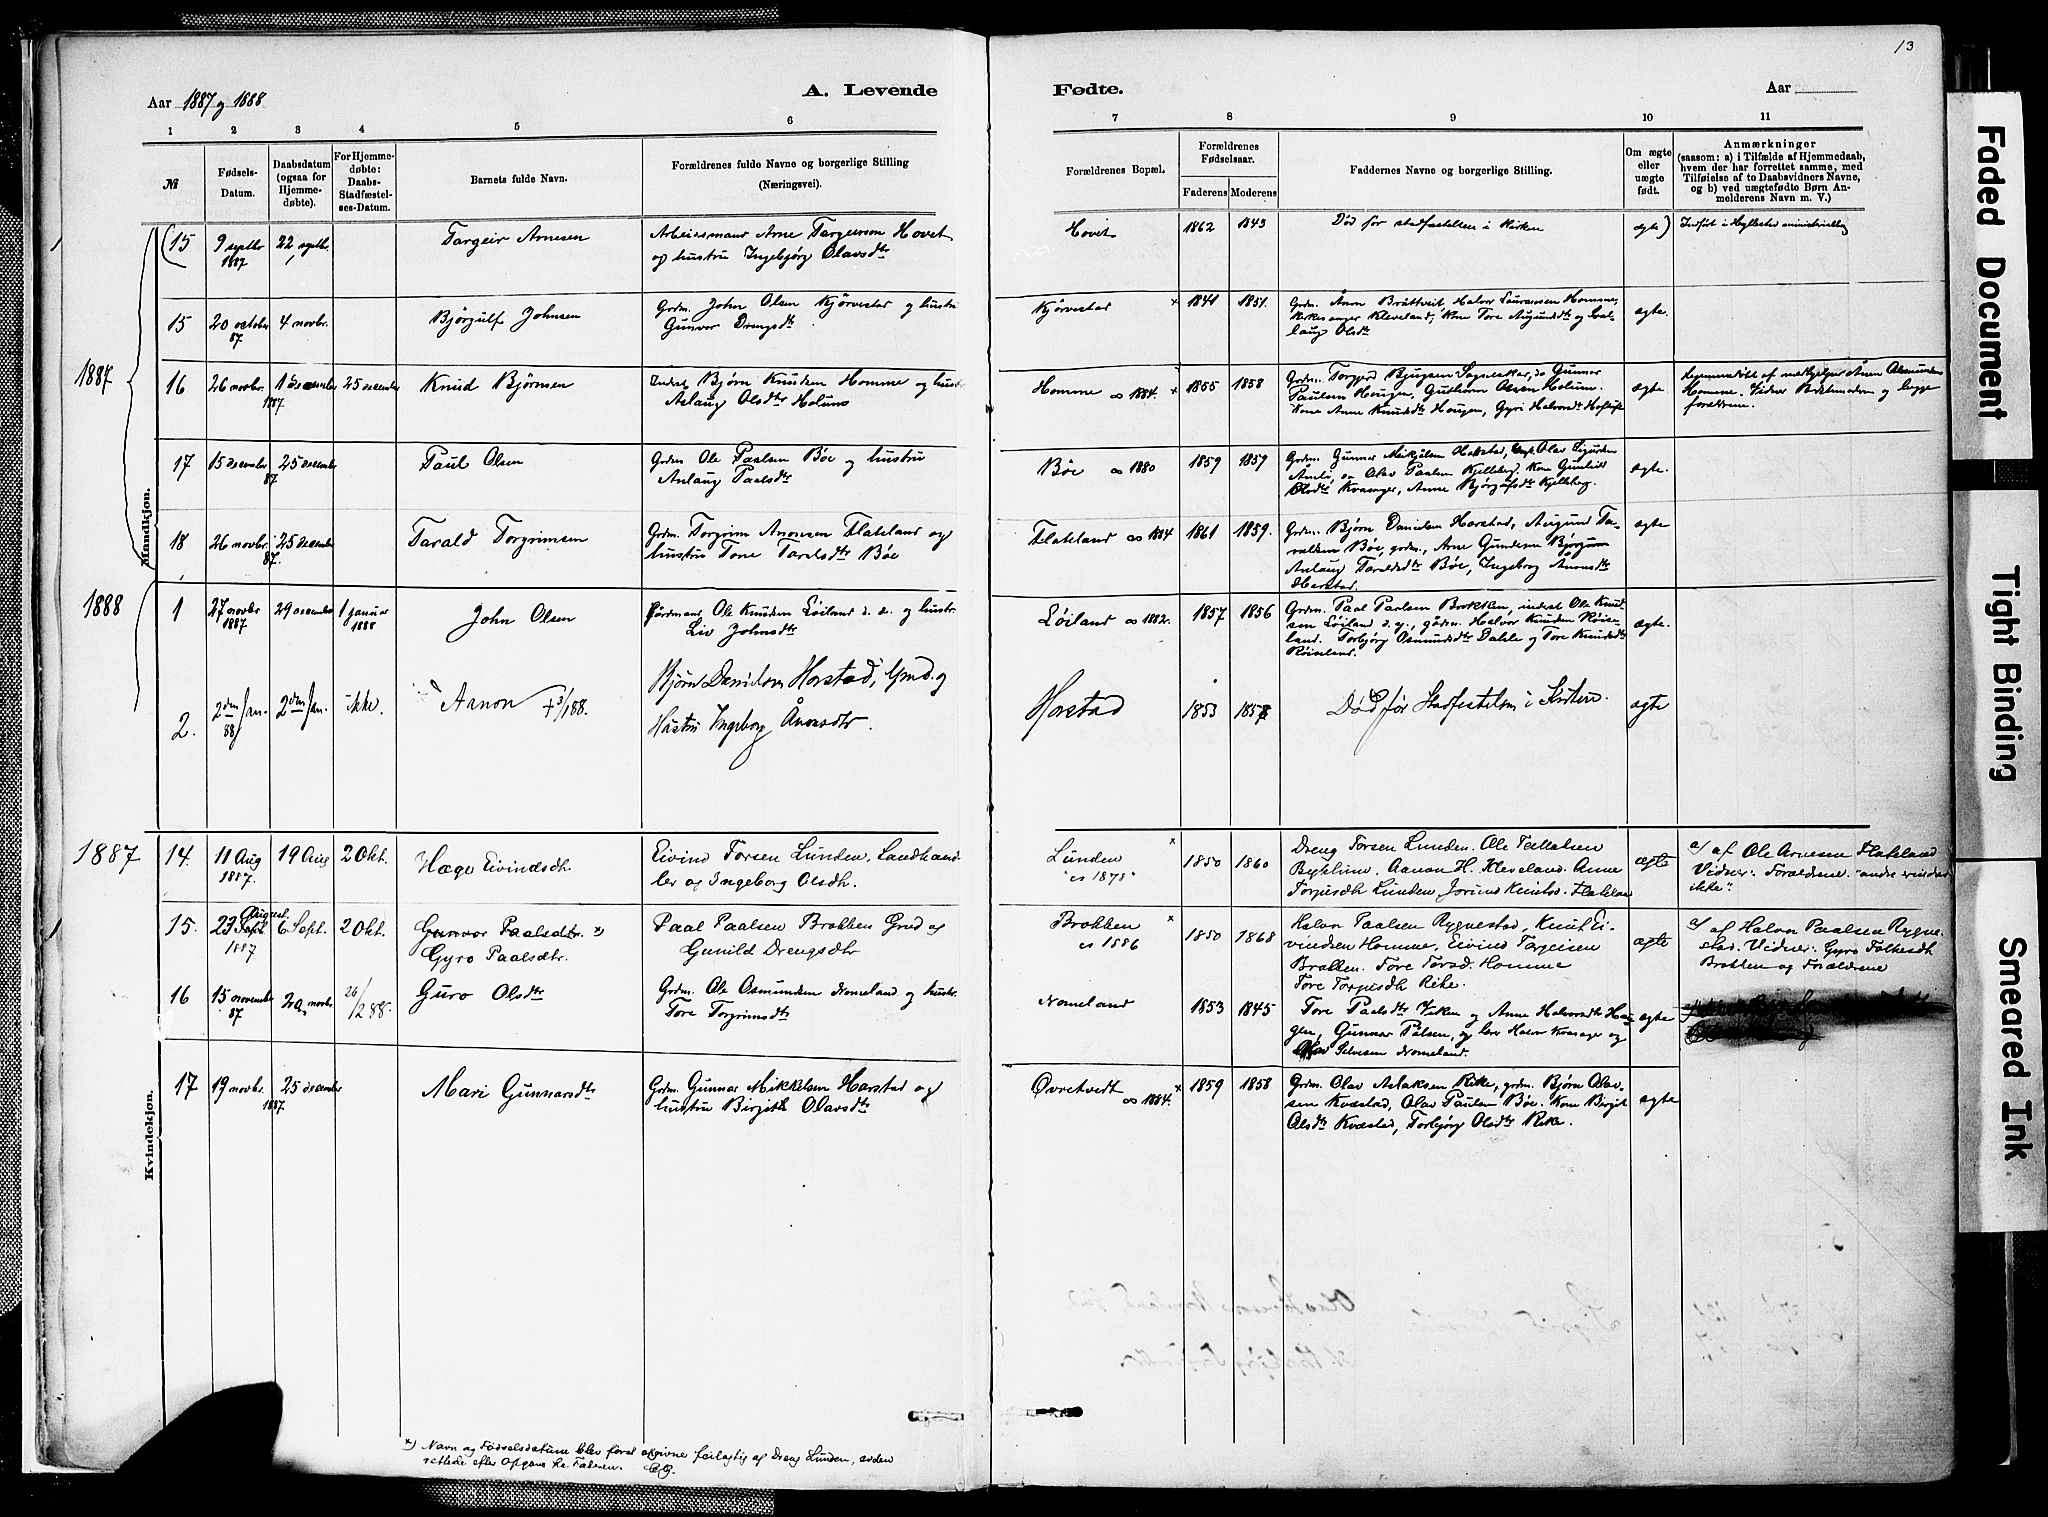 13
Aar 1887 og 1888
A. Levende
Fødte.
Aar
1 2 3 4 5 6 7 8 9 10 11
№
Fødsels-
Datum.
Daabsdatum
(ogsaa for
Hjemme-
døbte).
For Hjemme-
døbte:
Daabs-
Stadfæstel-
ses-Datum.
Barnets fulde Navn.
Forældrenes fulde Navne og borgerlige Stilling
(Næringsvei).
Forældrenes Bopæl.
Forældrenes
Fødselsaar.
Faderens Moderens
Faddernes Navne og borgerlige Stilling.
Om ægte
eller
uægte
født.
Anmærkninger
(saasom: a) i Tilfælde af Hjemmedaab,
hvem der har forrettet samme, med
Tilføielse af to Daabsvidners Navne,
og b) ved uægtefødte Børn An-
melderens Navn m. V.)
Mandkjøn.
(15 9 septbr 1887 22 septbr. Targeir Arnesen
Arbeidsmand Arne Targeirson Hovet
og hustru Ingebjørg Olavsdtr
Hovet 1862 1843 Død før stadfæstelsen i Kirken ægte) Indført i Hyllestad
1887
15 20 october 87 4 novbr. Bjørgulf Johnsen
Grdm. John Olsen Kjørvestad og hustru
Gunvor Drengsdtr
Kjørvestad x 1841 1851.
Grdm. Ånon Brøttveit Halvor Lauransen Homme,
Kirkesanger Kleveland, Kone Tore Augundsdtr og
laug Olsdtr
ægte.
16 26 novbr. 1 december 1887. 25 december Knud Bjørnsen
Inderst Bjørn Knudsen Homme og hust.
Aslaug Olsdtr Holum
Homme ∞ 1884. x 1855 1858
Grdm. Torgjerd Bjugsen Sogneskar, do Gunnar
Paulsen Hougen, Guttorm Olsen Holum.
Kone Anne Knudsdtr Hougen, Gyri Halvorsdtr
ægte.
Hjemmedøbt af Ånon Asmundsen
Homme. Vidner og begge
forældrene.
17 15 december 87. 25 december Paul Olsen
Grdm Ole Paalsen Bøe og hustru
Aslaug Paalsdtr
Bøe ∞ 1880 1859 1859
Grdm. Gunnar Mikjålsen Harstad, Olav Sigurdsen
do Olav Paalsen Kjelleberg. Kone Gunhild
Olsdtr Kvasager, Anne Bjørgufsdtr Kjelleberg.
ægte.
18 26 novbr. 87. 25 december Tarald Torgrimsen
Grdm. Torgrim Anonsen Flateland og
hustru Tone Taralsdtr Bøe
Flateland ∞ 1884 1861 1859.
Grdm. Bjørn Danielsen Harstad, Augund Ta-
raldsen Bøe, grdm., Arne Gundersen Bjørgum
Aslaug Taraldsdtr Bøe, Ingeborg Anonsdtr
Harstad.
ægte
1888
1 27 novbr 1887 29 december 1 januar 1888 John Olsen
Gårdmand Ole Knudsen Løiland og hustr.
Liv Johnsdtr
Løiland ∞ 1882. 1857 1856
Grdm. Paal Paalsen Brokken, inderst Ole Knud-
sen Løiland, gårdm. Halvor Knudsen Røise-
land. Torbjørg Osmundsdtr Dahle og Tore Knudsdtr
Røiseland.
ægte.
2. 2den Jan. 88 2den Jan. ikke. Aanon † 3/1 88.
Bjørn Danielsen Harstad, Gmd. og
Hustru Ingeborg Ånonsdtr.
Harstad 1853 1857 Død før Stadfestelsen i Kirken. ægte
1887
Kvindekjøn.
14. 11 Aug 1887. 19 Aug 2 Okt. Hæge Eivindsdtr.
Eivind Torsen Lunden, Landhand-
ler og Ingeborg Olsdtr.
Lunden "∞ 1878" x 1850 1860
Dreng Torsen Lunden. Ole Tallaksen
Aanon H. Kleveland. Anne
Torjusdtr Lunden, Jorunn Knutsd. Flatelan
ægte
a) af Ole Arnesen Flateland
Vidner: Forældrene "andre vidner
ikke".
15. 23 August Sept 1887 6 Sept. 2 Okt. Gunvor Paalsdtr. x)
Gyro Paalsdtr.
Paal Paalsen Brokken Grd og
Gunild Drengsdtr
Brokken x ∞ 1886 1850 1868
Halvor Paalsen Rygnestad, Knut Ei-
vindsen Homme, Eivind Torgeirsen
Brokken. Tore Torsd. Homme
Tore Torjusdtr Rike.
ægte
a) af Halvor Paalsen Rygne-
stad. Vidner: Gyro Folkesdtr
Brokken og Forældrene
16 15 november 87 29 novbr. 26/2 88. Guro Olsdtr
Grdm. Ole Osmundsen Nomeland og hustr.
Tore Torgrimsdtr
Nomeland 1853 1845
Tore Paalsdtr Viken og Anne Halvorsdtr Hou-
gen, Gunnar Pålsen, og Halvor Kvasager og
Olav Nomeland.
ægte
17 19 novbr. 25 december 1887. Mari Gunnarsdtr
Grdm. Gunnar Mikkelsen Harstad og
hustru Birgith Olavsdtr
Øvretvedt x ∞ 1884. 1859 1858
Grdm. Olav Aslaksen Rike, grdm. Bjørn Olav-
sen Kvæstad, Olav Paulsen Bøe. Kone Birgit
Olsdtr Kvæstad, Torbjørg Olsdtr Rike.
ægte
x) Navn og Fødselsdatum blev først opgivne feilagtig af Dreng Lunden, siden
rettede efter Opgave fra Faderen.
Faded Document
Tight Binding
Smeared Ink